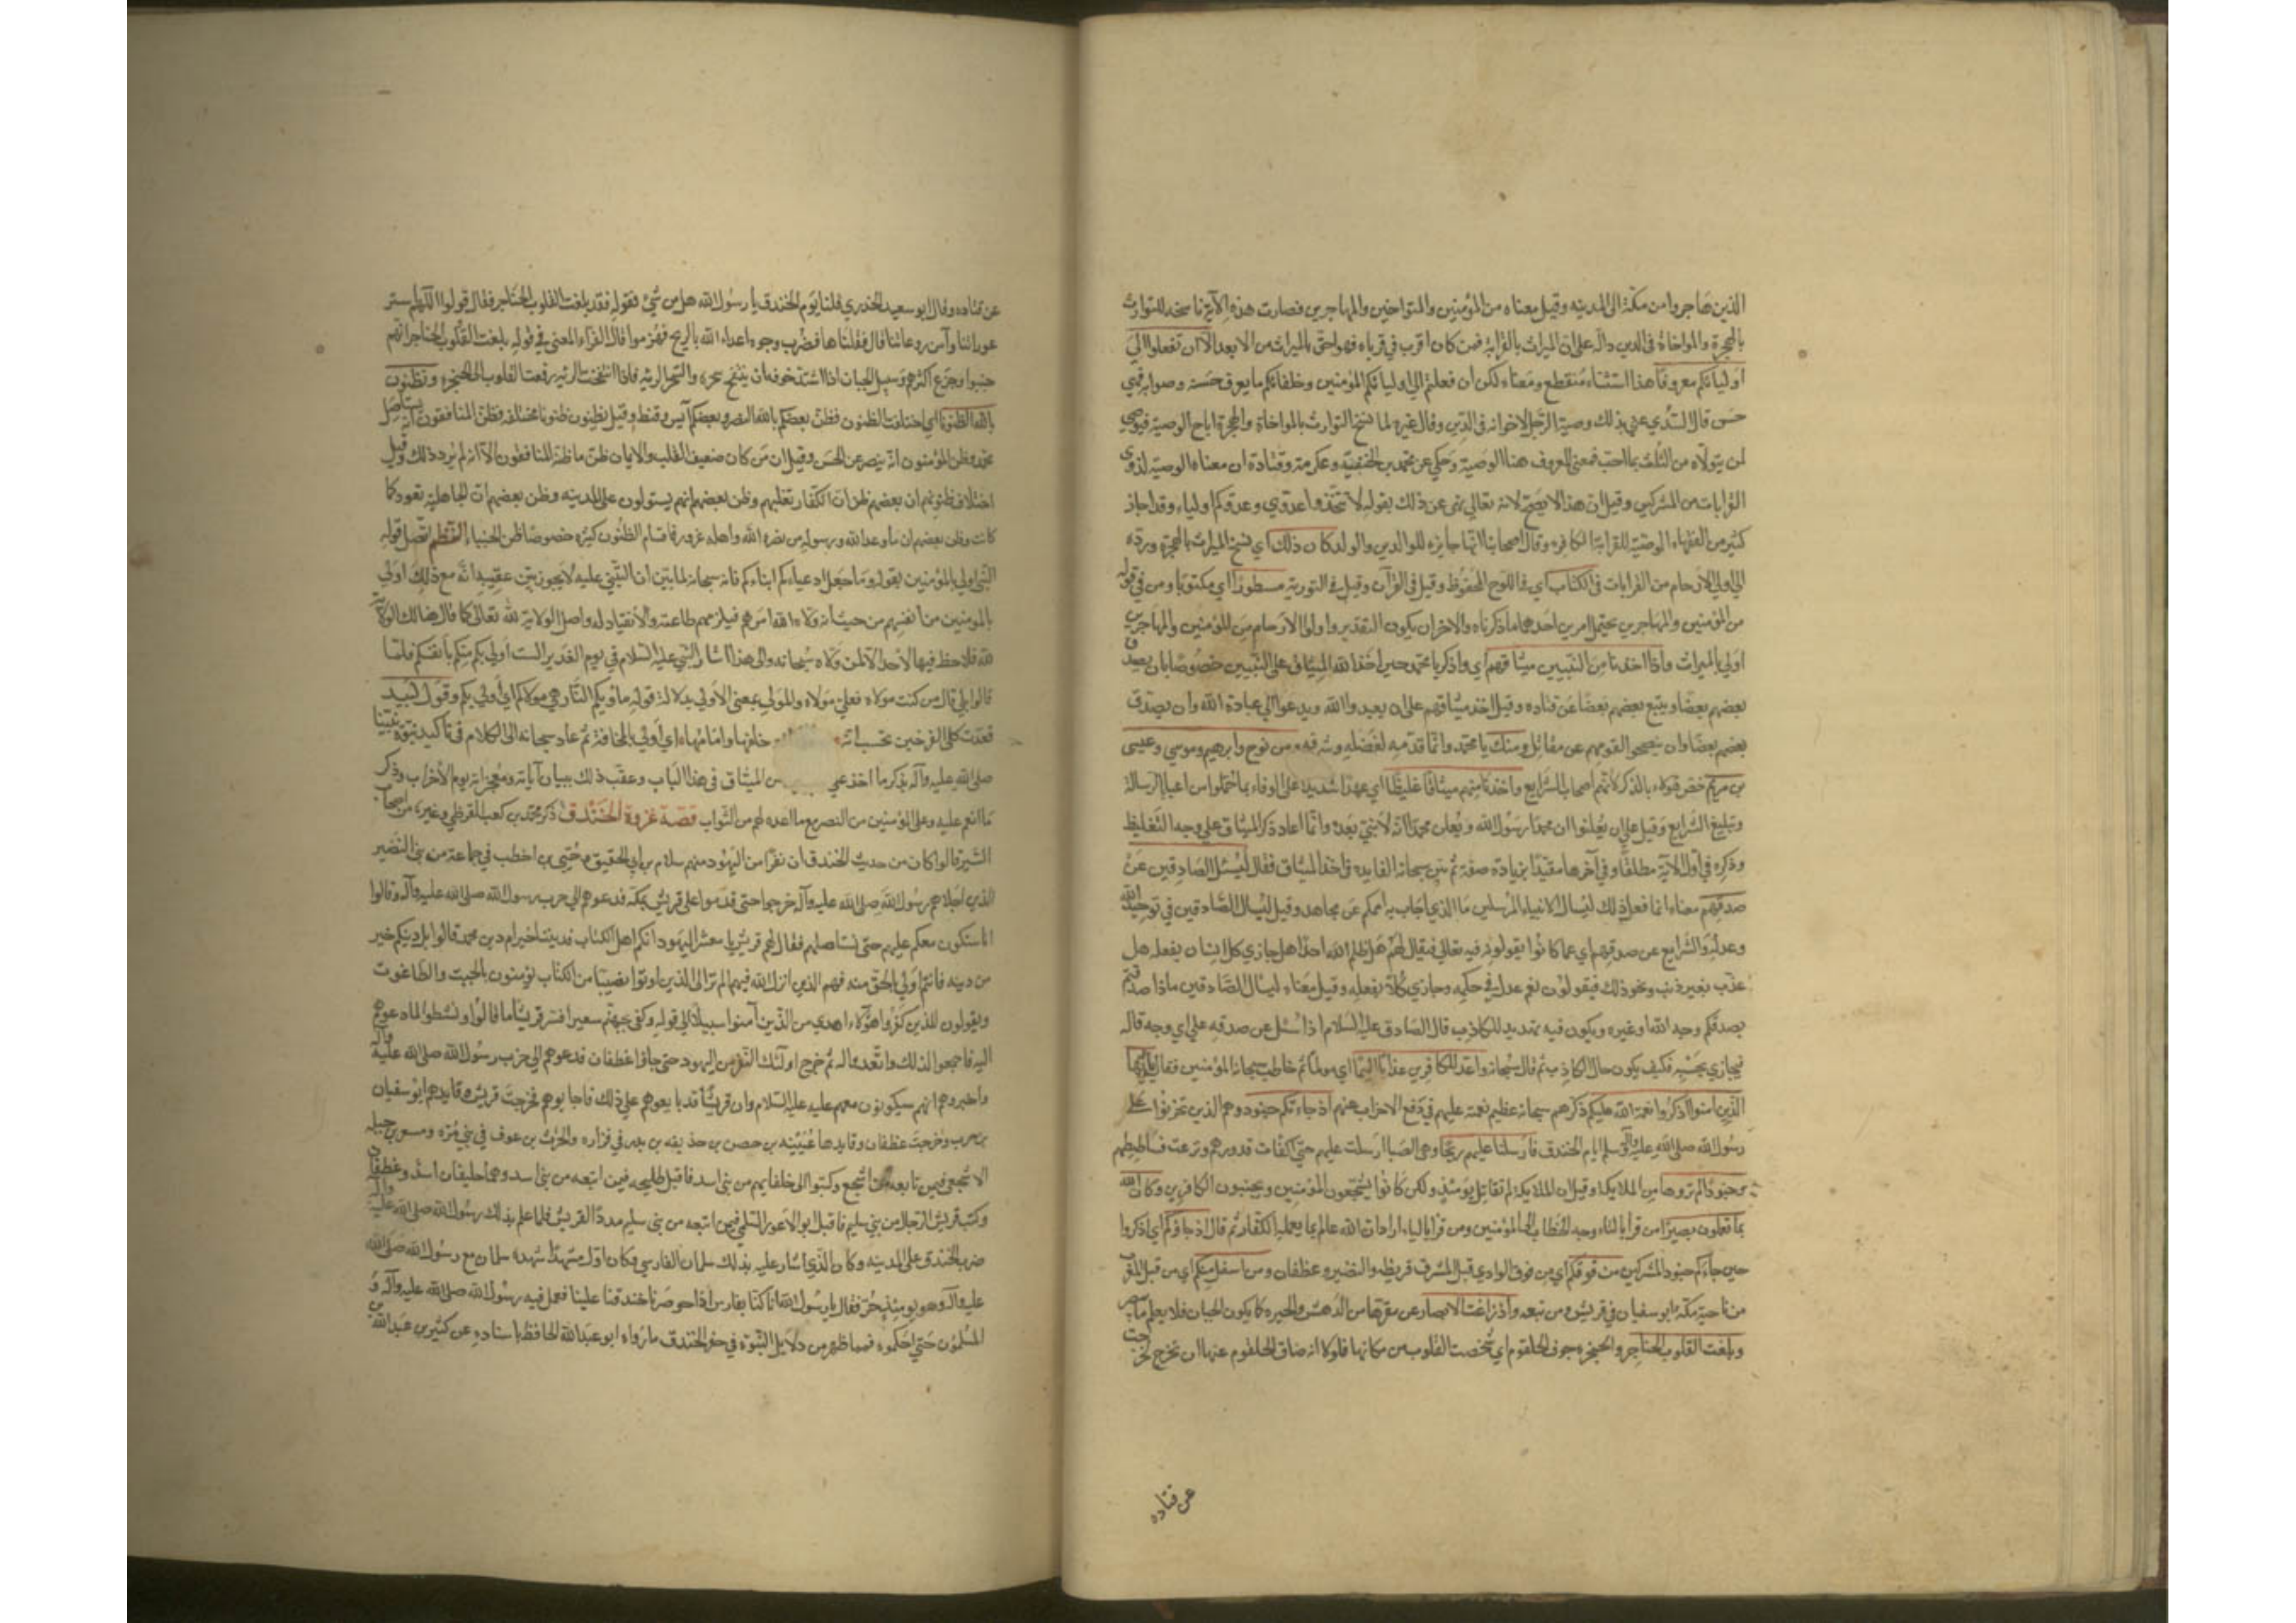 الذين هاجروا من مكة الى المدينه وقيل معناه من المؤمنين والمتواخين والمهاجرين فصارت هذه الآية ناسخه للتوارث
بالهجرة والمواخاة في الدين دالّة على ان الميراث بالقرابة فمن كان اقرب في قرباه فهو احق بالميراث من الابعد الا ان تفعلوا الى
اوليائكم معروفا هذا استثناء منقطع ومعناه لكن ان فعلتم الى اوليائكم المؤمنين وخلفائكم ما يعرف حسنه وصوابه فهو
حسن قال السدي عنى بذلك وصية الرجل لاخوانه في الدين وقال غيره لما نسخ التوارث بالمواخاة والهجرة اباح الوصية فيوصي
لمن يتولاه من الثلث بما احب فمعنى المعروف هنا الوصية وحكي عن محمد بن الحنفية وعكرمة وقتادة ان معناه الوصية لذوي
القرابات من المشركين وقيل ان هذا لا يصح لانه تعالى نهى عن ذلك بقوله لا تتخذوا عدوي وعدوكم اولياء وقد اجاز
كثير من الفقهاء الوصية للقرابة الكافره وقال اصحابنا انها جايزه للوالدين والولد كان ذلك اي نسخ الميراث بالهجرة ورده
الى اولي الارحام من القرابات في الكتاب اي في اللوح المحفوظ وقيل في القرآن وقيل في التورية مسطورا اي مكتوبا ومن في قوله
من المؤمنين والمهاجرين يحتمل امرين احدهما ما ذكرناه والاخر ان يكون التقدير واولوا الارحام من المؤمنين والمهاجرين
اولى بالميراث واذ اخذنا من النبيين ميثاقهم اي واذكر يا محمد حين اخذ الله الميثاق على النبيين خصوصا بان يصدق
بعضهم بعضا ويتبع بعضهم بعضا عن قتاده وقيل اخذ ميثاقهم على ان يعبدوا الله ويدعوا الى عبادة الله وان يصدق
بعضهم بعضا وان ينصحوا لقومهم عن مقاتل ومنك يا محمد وانما قدمه لفضله وشرفه ومن نوح وابرهيم وموسي وعيسى
بن مريم خص هؤلاء بالذكر لانهم اصحاب الشرايع واخذنا منهم ميثاقا غليظا اي عهدا شديدا على الوفاء بما حملوا من اعباء الرسالة
وتبليغ الشرايع وقيل على ان يعلنوا ان محمدا رسول الله ويعلن محمد انه لا نبي بعده وانما اعاد ذكر الميثاق على وجه التغليظ
وذكره في اول الآية مطلقا وفي آخرها مقيدا بزيادة صفة ثم بين سبحانه الفايده في اخذ الميثاق فقال ليسئل الصادقين عن
صدقهم معناه انما فعل ذلك ليسال الانبياء المرسلين ما الذي اجاب به اممكم عن مجاهد وقيل ليسال الصادقين في توحيد الله
وعدله والشرايع عن صدقهم اي عما كانوا يقولونه فيه تعالى فيقال لهم هل ظلم الله احدا هل جازي كل انسان بفعله هل
عذب بغير ذنب ونحو ذلك فيقولون نعم عدل في حكمه وجازي كلا بفعله وقيل معناه ليسال الصادقين ماذا قصدتم
بصدقكم وجه الله او غيره ويكون فيه تهديد للكاذب قال الصادق عليه السلام اذا سئل عن صدقه على اي وجه قاله
فيجازي بحسبه فكيف يكون حال الكاذب ثم قال سبحانه واعد للكافرين عذابا اليما اي مولما ثم خاطب سبحانه المؤمنين فقال يا ايها
الذين آمنوا اذكروا نعمة الله عليكم ذكرهم سبحانه عظيم نعمته عليهم في دفع الاحزاب عنهم اذ جاءتكم جنود وهم الذين تحزبوا على
رسول الله صلى الله عليه وآله وسلم ايام الخندق فارسلنا عليهم ريحا وهي الصبا ارسلت عليهم حتى اكفأت قدورهم ونزعت فساطيطهم
وجنودا لم تروها من الملايكة وقيل ان الملايكة لم تقاتل يومئذ ولكن كانوا يشجعون المؤمنين ويجبنون الكافرين وكان الله
بما تعملون بصيرا من قرا بالتاء وجه الخطاب الى المؤمنين ومن قرا بالياء اراد ان الله عالم بما يعمله الكفار ثم قال اذ جاؤكم اي اذكروا
حين جاءكم جنود المشركين من فوقكم اي من فوق الوادي قبل المشرق قريظه والنضير وغطفان ومن اسفل منكم اي من قبل المغرب
من ناحية مكة ابو سفيان في قريش ومن تبعه واذ زاغت الابصار عن مقرها من الدهش والحيره كما يكون الجبان فلا يعلم ما يبصر
وبلغت القلوب الحناجر والحنجره جوف الحلقوم اي شخصت القلوب من مكانها فلولا انه ضاق الحلقوم عنها ان تخرج لخرجت
عن قتاده
عن قتاده وقال ابو سعيد الخدري قلنا يوم الخندق يا رسول الله هل من شئ فقوله فقد بلغت القلوب الحناجر فقال قولوا اللهم استر
عوراتنا وآمن روعاتنا قال فقلناها فضرب وجوه اعداء الله بالريح فهزموا قال الفراء المعنى في قوله بلغت القلوب الحناجر انهم
جبنوا وجزع اكثرهم وسبيل الجبان اذا اشتد خوفه ان ينتفخ سحره والسحر الريه فاذا انتفخت الريه رفعت القلوب الى الحنجره وتظنون
بالله الظنونا اي اختلفت الظنون فظن بعضكم بالله النصر وبعضكم آيس وقنط وقيل تظنون ظنونا مختلفه فظن المنافقون انه يستأصل
محمد وظن المؤمنون انه ينصر عن الحسن وقيل ان من كان ضعيف القلب والايمان ظن ما ظنه المنافقون الا انه لم يرد ذلك وقيل
اختلاف ظنونهم ان بعضهم ظن ان الكفار تغلبهم وظن بعضهم انهم يستولون على المدينه وظن بعضهم ان الجاهلية تعود كما
كانت وظن بعضهم ان ما وعد الله ورسوله من نصره الله واهله غرور فاقسام الظنون كثيره خصوصا ظن الجبناء النظم اتصل قوله
النبي اولى بالمؤمنين بقوله وما جعل ادعياءكم ابناءكم فانه سبحانه لما بين ان التبني عليه لا يجوز بين عقيبه انه مع ذلك اولى
بالمومنين من انفسهم من حيث انه ولاه الله امرهم فيلزمهم طاعته والانقياد له واصل الولاية لله تعالى كما قال هنالك الولاية
لله فلا حظ فيها لاحد الا لمن ولاه سبحانه والى هذا اشار النبي عليه السلام في يوم الغدير الست اولى بكم منكم بانفسكم فلما
قالوا بلى قال من كنت مولاه فعلي مولاه والمولى بمعنى الاولى بدلالة قوله مأويكم النار هي مولاكم اي اولى بكم وقول لبيد
فغدت كلا الفرجين تحسب انه خلفها وامامها اي اولى بالمخافة ثم عاد سبحانه الى الكلام في تاكيد نبوة نبينا
صلى الله عليه وآله بذكر ما اخذ من الميثاق في هذا الباب وعقب ذلك ببيان آياته ومعجزاته يوم الاحزاب وذكر
ما انعم عليه وعلى المؤمنين من النصر مع ما اعده لهم من الثواب قصة غزوة الخندق ذكر محمد بن كعب القرظي وغيره من اصحاب
السير قالوا كان من حديث الخندق ان نفرا من اليهود منهم سلام بن ابي الحقيق وحيي بن اخطب في جماعة من بني النضير
الذين اجلاهم رسول الله صلى الله عليه وآله خرجوا حتى قدموا على قريش بمكة فدعوهم الى حرب رسول الله صلى الله عليه وآله وقالوا
انا سنكون معكم عليهم حتى نستاصلهم فقال لهم قريش يا معشر اليهود انكم اهل الكتاب فديننا خير ام دين محمد قالوا بل دينكم خير
من دينه فانتم اولى بالحق منه فهم الذين انزل الله فيهم الم تر الى الذين اوتوا نصيبا من الكتاب يؤمنون بالجبت والطاغوت
ويقولون للذين كفروا هؤلاء اهدى من الذين آمنوا سبيلا الى قوله وكفى بجهنم سعيرا فسر قريشا ما قالوا ونشطوا لما دعوهم
اليه فاجمعوا لذلك واتعدوا له ثم خرج اولئك النفر من اليهود حتى جاؤا غطفان فدعوهم الى حرب رسول الله صلى الله عليه وآله
واخبروهم انهم سيكونون معهم عليه عليه السلام وان قريشا قد بايعوهم على ذلك فاجابوهم فخرجت قريش وقايدهم ابو سفيان
بن حرب وخرجت غطفان وقايدها عيينه بن حصن بن حذيفه بن بدر في فزاره والحرث بن عوف في بني مره ومسعر بن جبله
الاشجعي فيمن تابعه من اشجع وكتبوا الى حلفايهم من بني اسد فاقبل طليحه فيمن اتبعه من بني اسد وهما حليفان اسد وغطفان
وكتب قريش الى رجال من بني سليم فاقبل ابو الاعور السلمي فيمن اتبعه من بني سليم مددا لقريش فلما علم بذلك رسول الله صلى الله عليه وآله
ضرب الخندق على المدينه وكان الذي اشار عليه بذلك سلمان الفارسي وكان اول مشهد شهده سلمان مع رسول الله صلى الله
عليه وآله وهو يومئذ حر فقال يا رسول الله انا كنا بفارس اذا حوصرنا خندقنا علينا فعمل فيه رسول الله صلى الله عليه وآله و
المسلمون حتى احكموه فمما ظهر من دلايل النبوة في حفر الخندق ما رواه ابو عبد الله الحافظ باسناده عن كثير بن عبد الله بن